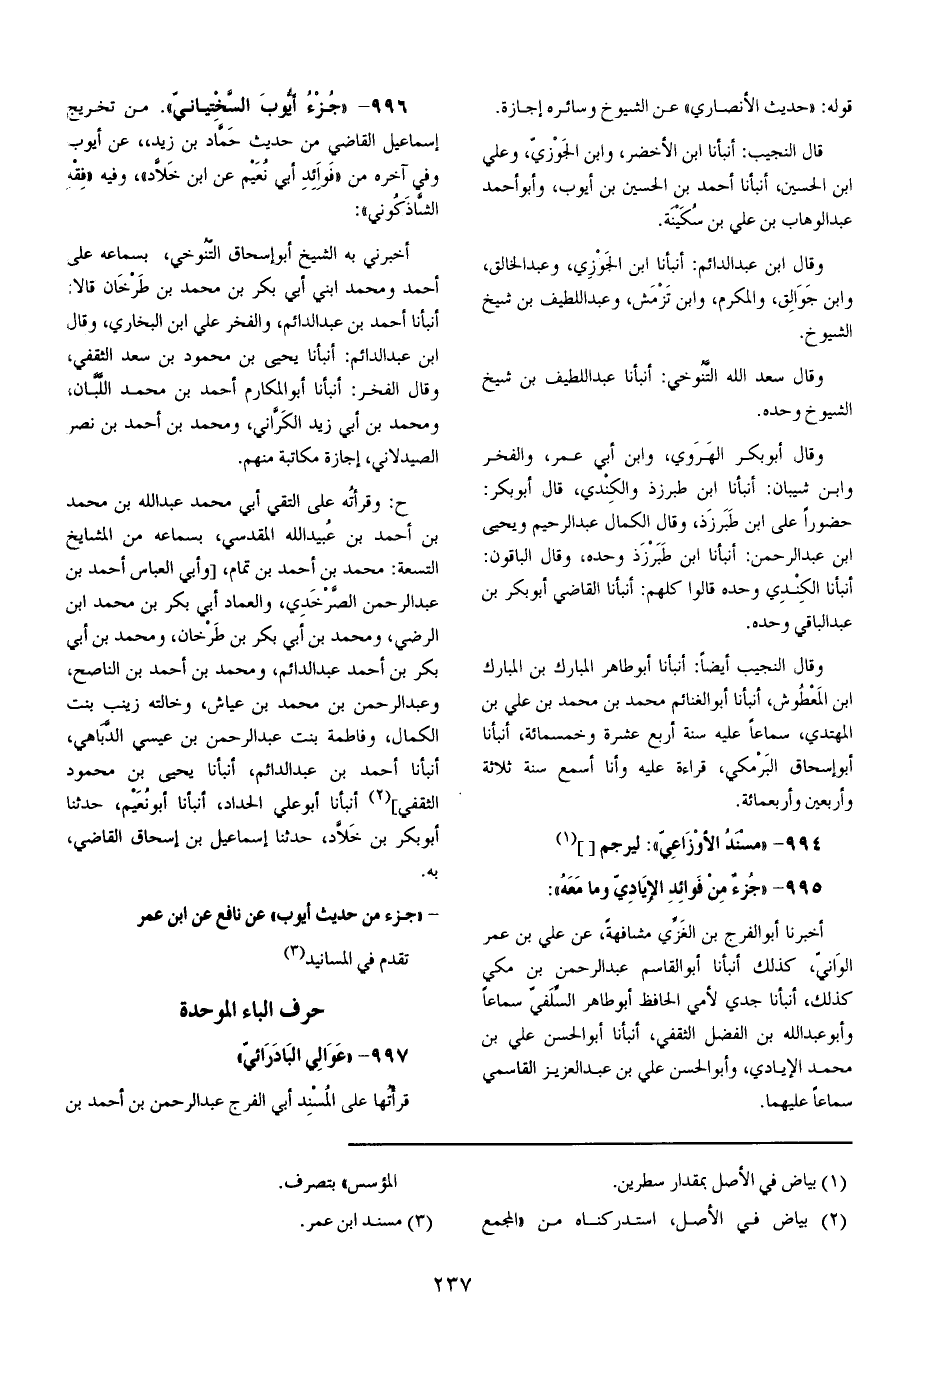 قوله: «حديث الأنصاري» عن الشيوخ وسائره إجازة.
قال النجيب: أنبأنا ابن الأخضر، وابن الجَوْزيّ، وعلي
ابن الحسين، أنبأنا أحمد بن الحسين بن أيوب، وأبوأحمد
عبدالوهاب بن علي بن سُكَيْنَة.
وقال ابن عبدالدائم: أنبأنا ابن الجَوْزِي، وعبدالخالق،
وابن جَوَالِق، والمكرم، وابن تَزْمَش، وعبداللطيف بن شيخ
الشيوخ.
وقال سعد الله التَّنُوخي: أنبأنا عبداللطيف بن شيخ
الشيوخ وحده.
وقال أبوبكر الهَرَوي، وابن أبي عمر، والفخر
وابن شيبان: أنبأنا ابن طبرزذ والكِنْدي، قال أبوبكر:
حضوراً على ابن طَبَرزَذ، وقال الكمال عبدالرحيم ويحيى
ابن عبدالرحمن: أنبأنا ابن طَبَرْزَذ وحده، وقال الباقون:
أنبأنا الكِنْدِي وحده قالوا كلهم: أنبأنا القاضي أبوبكر بن
عبدالباقي وحده.
وقال النجيب أيضاً: أنبأنا أبوطاهر المبارك بن المبارك
ابن المَعْطُوش، أنبأنا أبوالغنائم محمد بن محمد بن علي بن
المهتدي، سماعاً عليه سنة أربع عشرة وخمسمائة، أنبأنا
أبوإسحاق البَرْمكي، قراءة عليه وأنا أسمع سنة ثلاثة
وأربعين وأربعمائة.
٩٩٤- «مسْنَدُ الأوْزَاعِيّ»: ليرجم [ ](١)
٩٩٥- «جُزءٌ مِنْ فَوائدِ الإيَادِيّ وما مَعَهُ»:
أخبرنا أبوالفرج بن الغَزِّي مشافهةً، عن علي بن عمر
الوَانيّ، كذلك أنبأنا أبوالقاسم عبدالرحمن بن مكي
كذلك، أنبأنا جدي لأمي الحافظ أبوطاهر السِّلَفيّ سماعاً
وأبوعبدالله بن الفضل الثقفي، أنبأنا أبوالحسن علي بن
محمد الإيادي، وأبوالحسن علي بن عبدالعزيز القاسمي
سماعاً عليهما.
٩٩٦- «جُزْءُ أيُّوبَ السَّخْتِيانيّ». من تخريج
إسماعيل القاضي من حديث حَمَّاد بن زيد،، عن أيوب
وفي آخره من «فَوَائِدِ أبي نُعَيْم عن ابن خَلاَّد»، وفيه «فِقْهِ
الشَّاذَكُوني»:
أخبرني به الشيخ أبوإسحاق التَّنُوخي، بسماعه على
أحمد ومحمد ابني أبي بكر بن محمد بن طَرْخَان قالا:
أنبأنا أحمد بن عبدالدائم، والفخر علي ابن البخاري، وقال
ابن عبدالدائم: أنبأنا يحيى بن محمود بن سعد الثقفي،
وقال الفخر: أنبأنا أبوالمكارم أحمد بن محمد اللَّبَّان،
ومحمد بن أبي زيد الكَرَّاني، ومحمد بن أحمد بن نصر
الصيدلاني، إجازة مكاتبة منهم.
ح: وقرأتُه على التقي أبي محمد عبدالله بن محمد
بن أحمد بن عُبيدالله المقدسي، بسماعه من المشايخ
التسعة: محمد بن أحمد بن تمام، [وأبي العباس أحمد بن
عبدالرحمن الصَّرْخَدِي، والعماد أبي بكر بن محمد ابن
الرضي، ومحمد بن أبي بكر بن طَرْخان، ومحمد بن أبي
بكر بن أحمد عبدالدائم، ومحمد بن أحمد بن الناصح،
وعبدالرحمن بن محمد بن عياش، وخالته زينب بنت
الكمال، وفاطمة بنت عبدالرحمن بن عيسي الدَّبَاهي،
أنبأنا أحمد بن عبدالدائم، أنبأنا يحيى بن محمود
الثقفي](٢) أنبأنا أبوعلي الحداد، أنبأنا أبونُعَيْم، حدثنا
أبوبكر بن خَلاَّد، حدثنا إسماعيل بن إسحاق القاضي،
به.
- «جزء من حديث أيوب» عن نافع عن ابن عمر
تقدم في المسانيد(٣)
حرف الباء الموحدة
٩٩٧- «عَوَالِي البَادَرَائيّ»
قرأتُها على المُسْنِد أبي الفرج عبدالرحمن بن أحمد بن
(١) بياض في الأصل بمقدار سطرين.
(٢) بياض في الأصل، استدركناه من «المجمع
المؤسس» بتصرف.
(٣) مسند ابن عمر.
٢٣٧